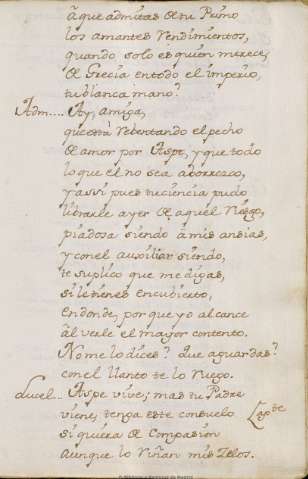 à que admitas de tu Primo
los amantes Rendimientos,
quando, solo es quien merece,
de Grecia en todo el imperio,
tu blanca mano?
Adm.... Ay, amiga,
que està rebentando el pecho
de amor por Aspe, y que todo
lo que el no sea aborrezco,
y assi pues tu ciencia pudo
librarle ayer de aquel Riesgo,
piadosa siendo à mis ansias,
y con el auxiliar siendo,
te suplico que me digas,
si le tienes encubierto,
en donde, por que yo alcance
al verle el mayor contento.
No me lo dices? que aguardas?
con el llanto te lo ruego.
ducel.. Aspe vive; mas tu Padre
viene, tenga este consuelo
si quiera de Compasion
aunque lo Riñan mis Zelos.